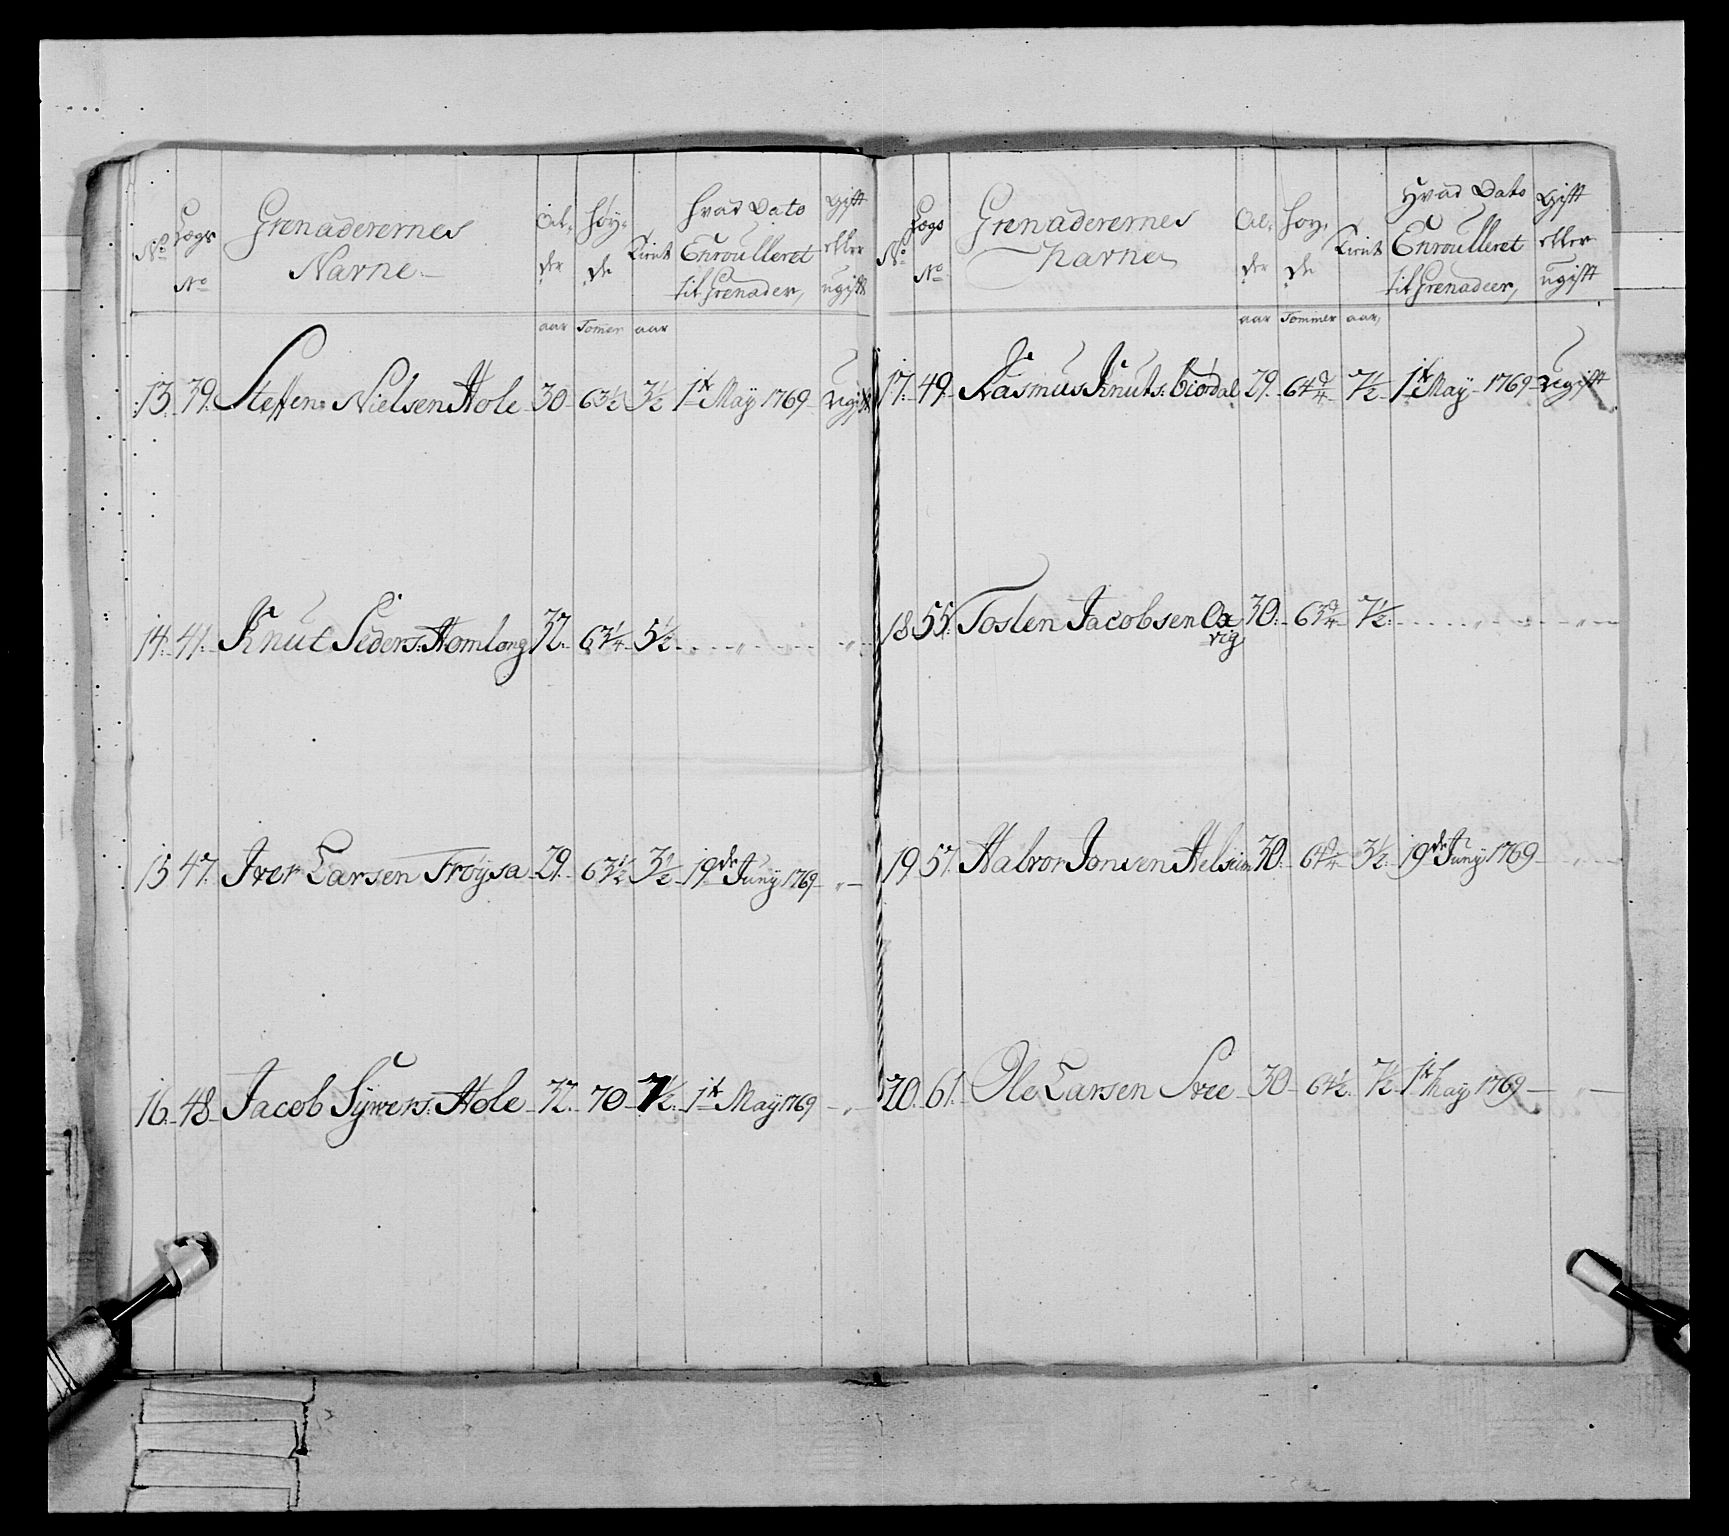 No Lægs No Grenaderernes Navne Al-der Høy-de Tient Hvad Dato Enroulleret til Grenader, Gift eller ugift
aar Tomer aar
13. 39. Steffen Nielsen Hole 30 63½ 3½ 1t May 1769 Ugift
14. 41. Knut Peders: Homlong 32. 63¼ 5½ " "
15 47. Iver Larsen Frøysa 29. 63½ 3½ 19de Juny 1769 "
16. 48 Jacob Sywers: Hole 32. 70 7½ 1t May 1769 "
No Lægs No Grenaderernes Navne Al-der Høy-de Tient Hvad Dato Enroulleret til Grenadeer, Gift eller ugift
aar Tommer aar,
17. 49. Rasmus Knuts: Giørdal 29. 64¾ 7½ 1t May 1769 Ugift
18 55. Tosten Jacobsen Ox
vig 30. 63¾ 7½ " "
19 57. Halvor Jonsen Helsiem 30. 64¾ 3½ 19de Juny 1769 "
20. 61. Ole Larsen Svee 30 64½ 7½ 1t May 1769 "